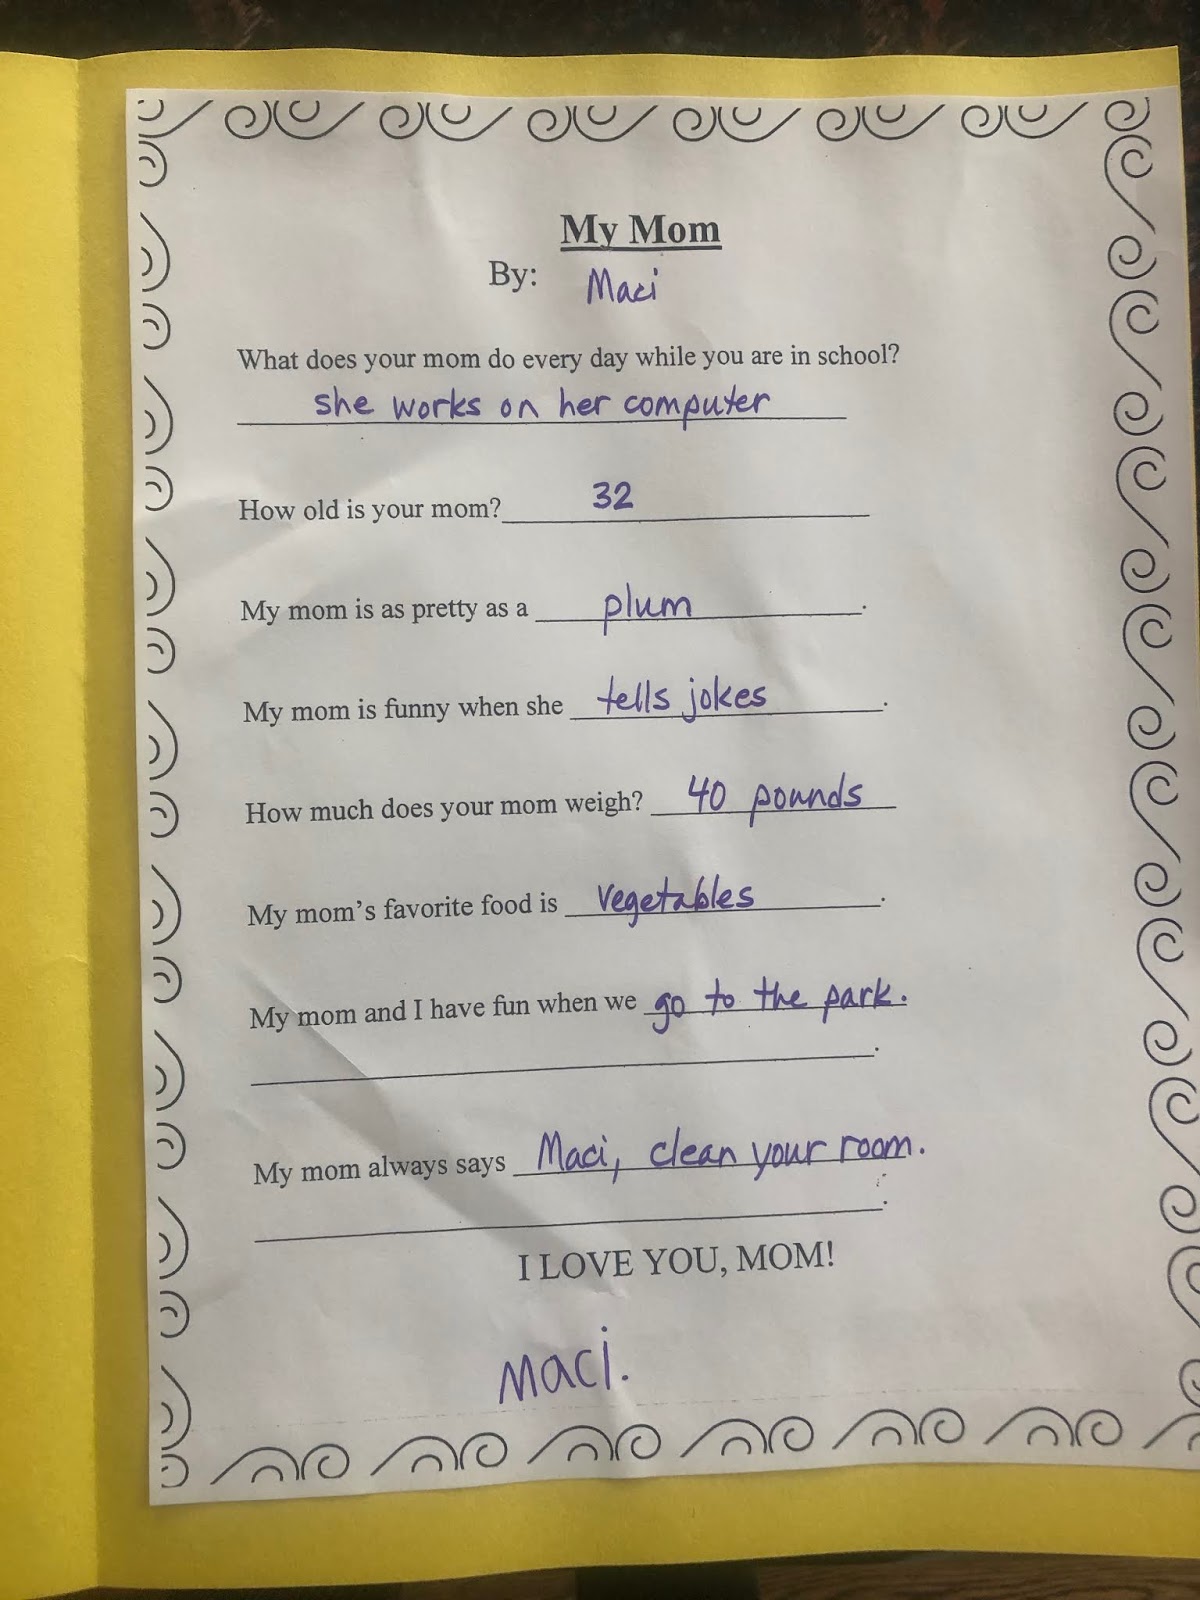 My Mom
By: Maci
What does your mom do every day while you are in school?
she works on her computer
How old is your mom? 32
My mom is as pretty as a plum.
My mom is funny when she tells jokes.
How much does your mom weigh? 40 pounds
My mom's favorite food is vegetables.
My mom and I have fun when we go to the park.
.
My mom always says Maci, clean your room.
.
I LOVE YOU, MOM!
Maci.